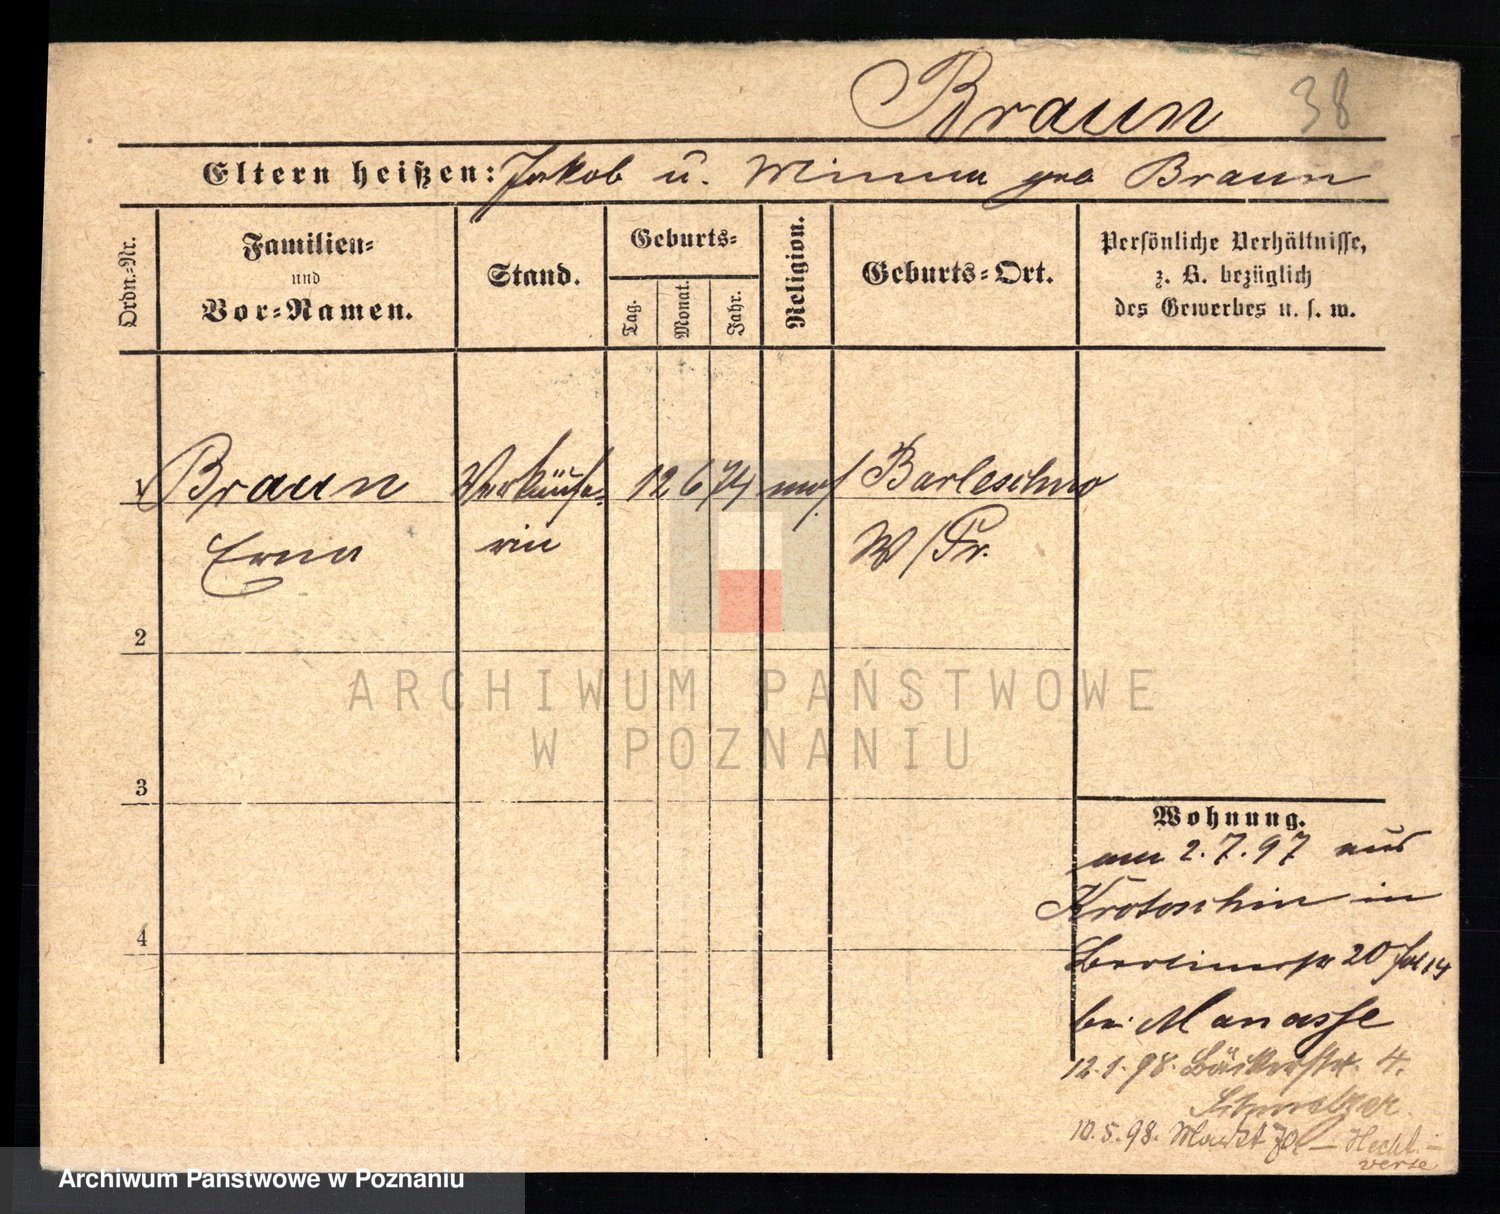 Braun 38
Eltern heißen: Jakob u. Minna geb Braun
Ordn.-Nr.
Familien-
und
Vor-Namen.
Stand.
Geburts-
Tag. Monat. Jahr.
Religion.
Geburts-Ort.
Persönliche Verhältnisse,
z. B. bezüglich
des Gewerbes u. s. w.
1 Braun Verkäufe- 12 6 74 mos Barloschno
Erna rin W/Pr.
2
3
4
Wohnung.
am 2.7.97 aus
Krotoschin in
Berlinerstr 20
bei Manasse
12.1.98. Bäckerstr. 4.
10.5.98. Markt
verte
ARCHIWUM PAŃSTWOWE
W POZNANIU
Archiwum Państwowe w Poznaniu